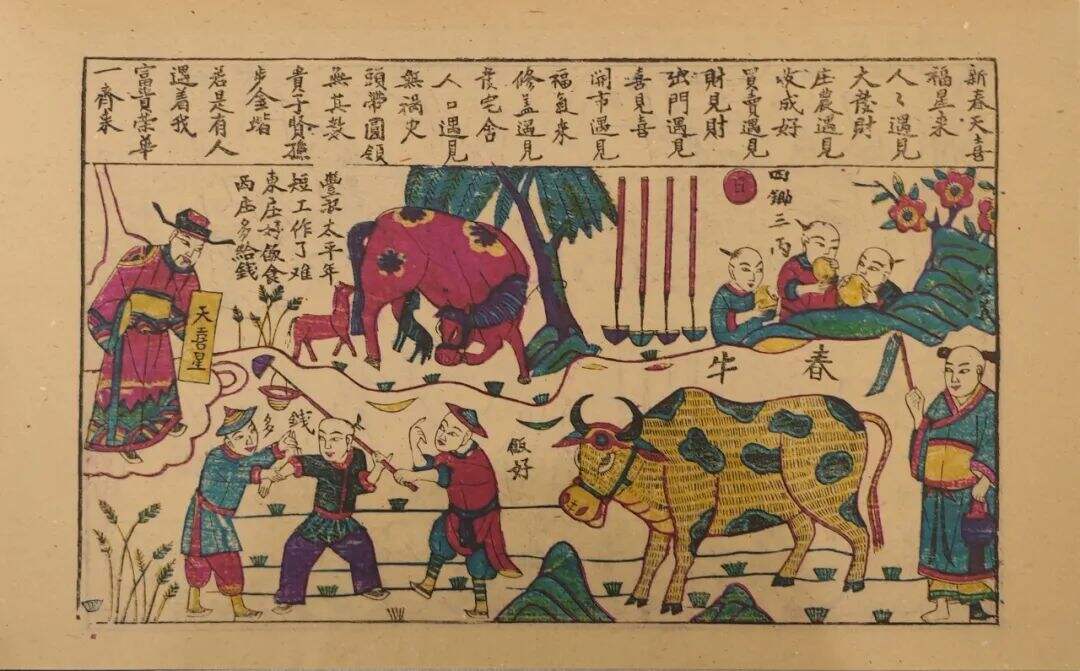 新春天喜
福星來
人々遇見
大發財
庄農遇見
收成好
買賣遇見
財見財
門遇見
喜見喜
開市遇見
福氣來
修盖遇見
宅舍
人口遇見
無禍
頭帶圓領
無其数
貴子賢孫
步金堦
若是有人
遇着我
富貴榮華
一齊來
日
四鄉三
豐 太平年
短工作了难
東庄好飯食
西庄多給錢
天喜星
春牛
錢多
飯好